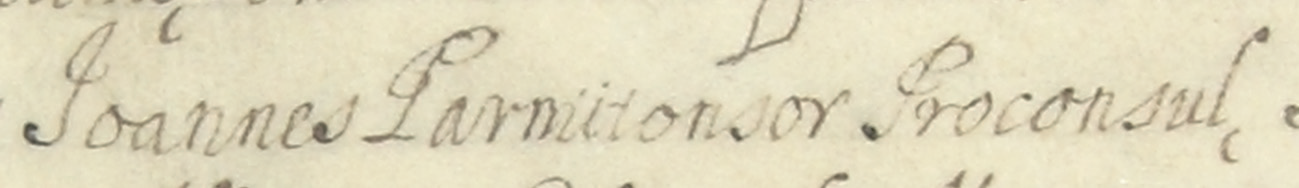 Joannes Parnitionsor Proconsul,